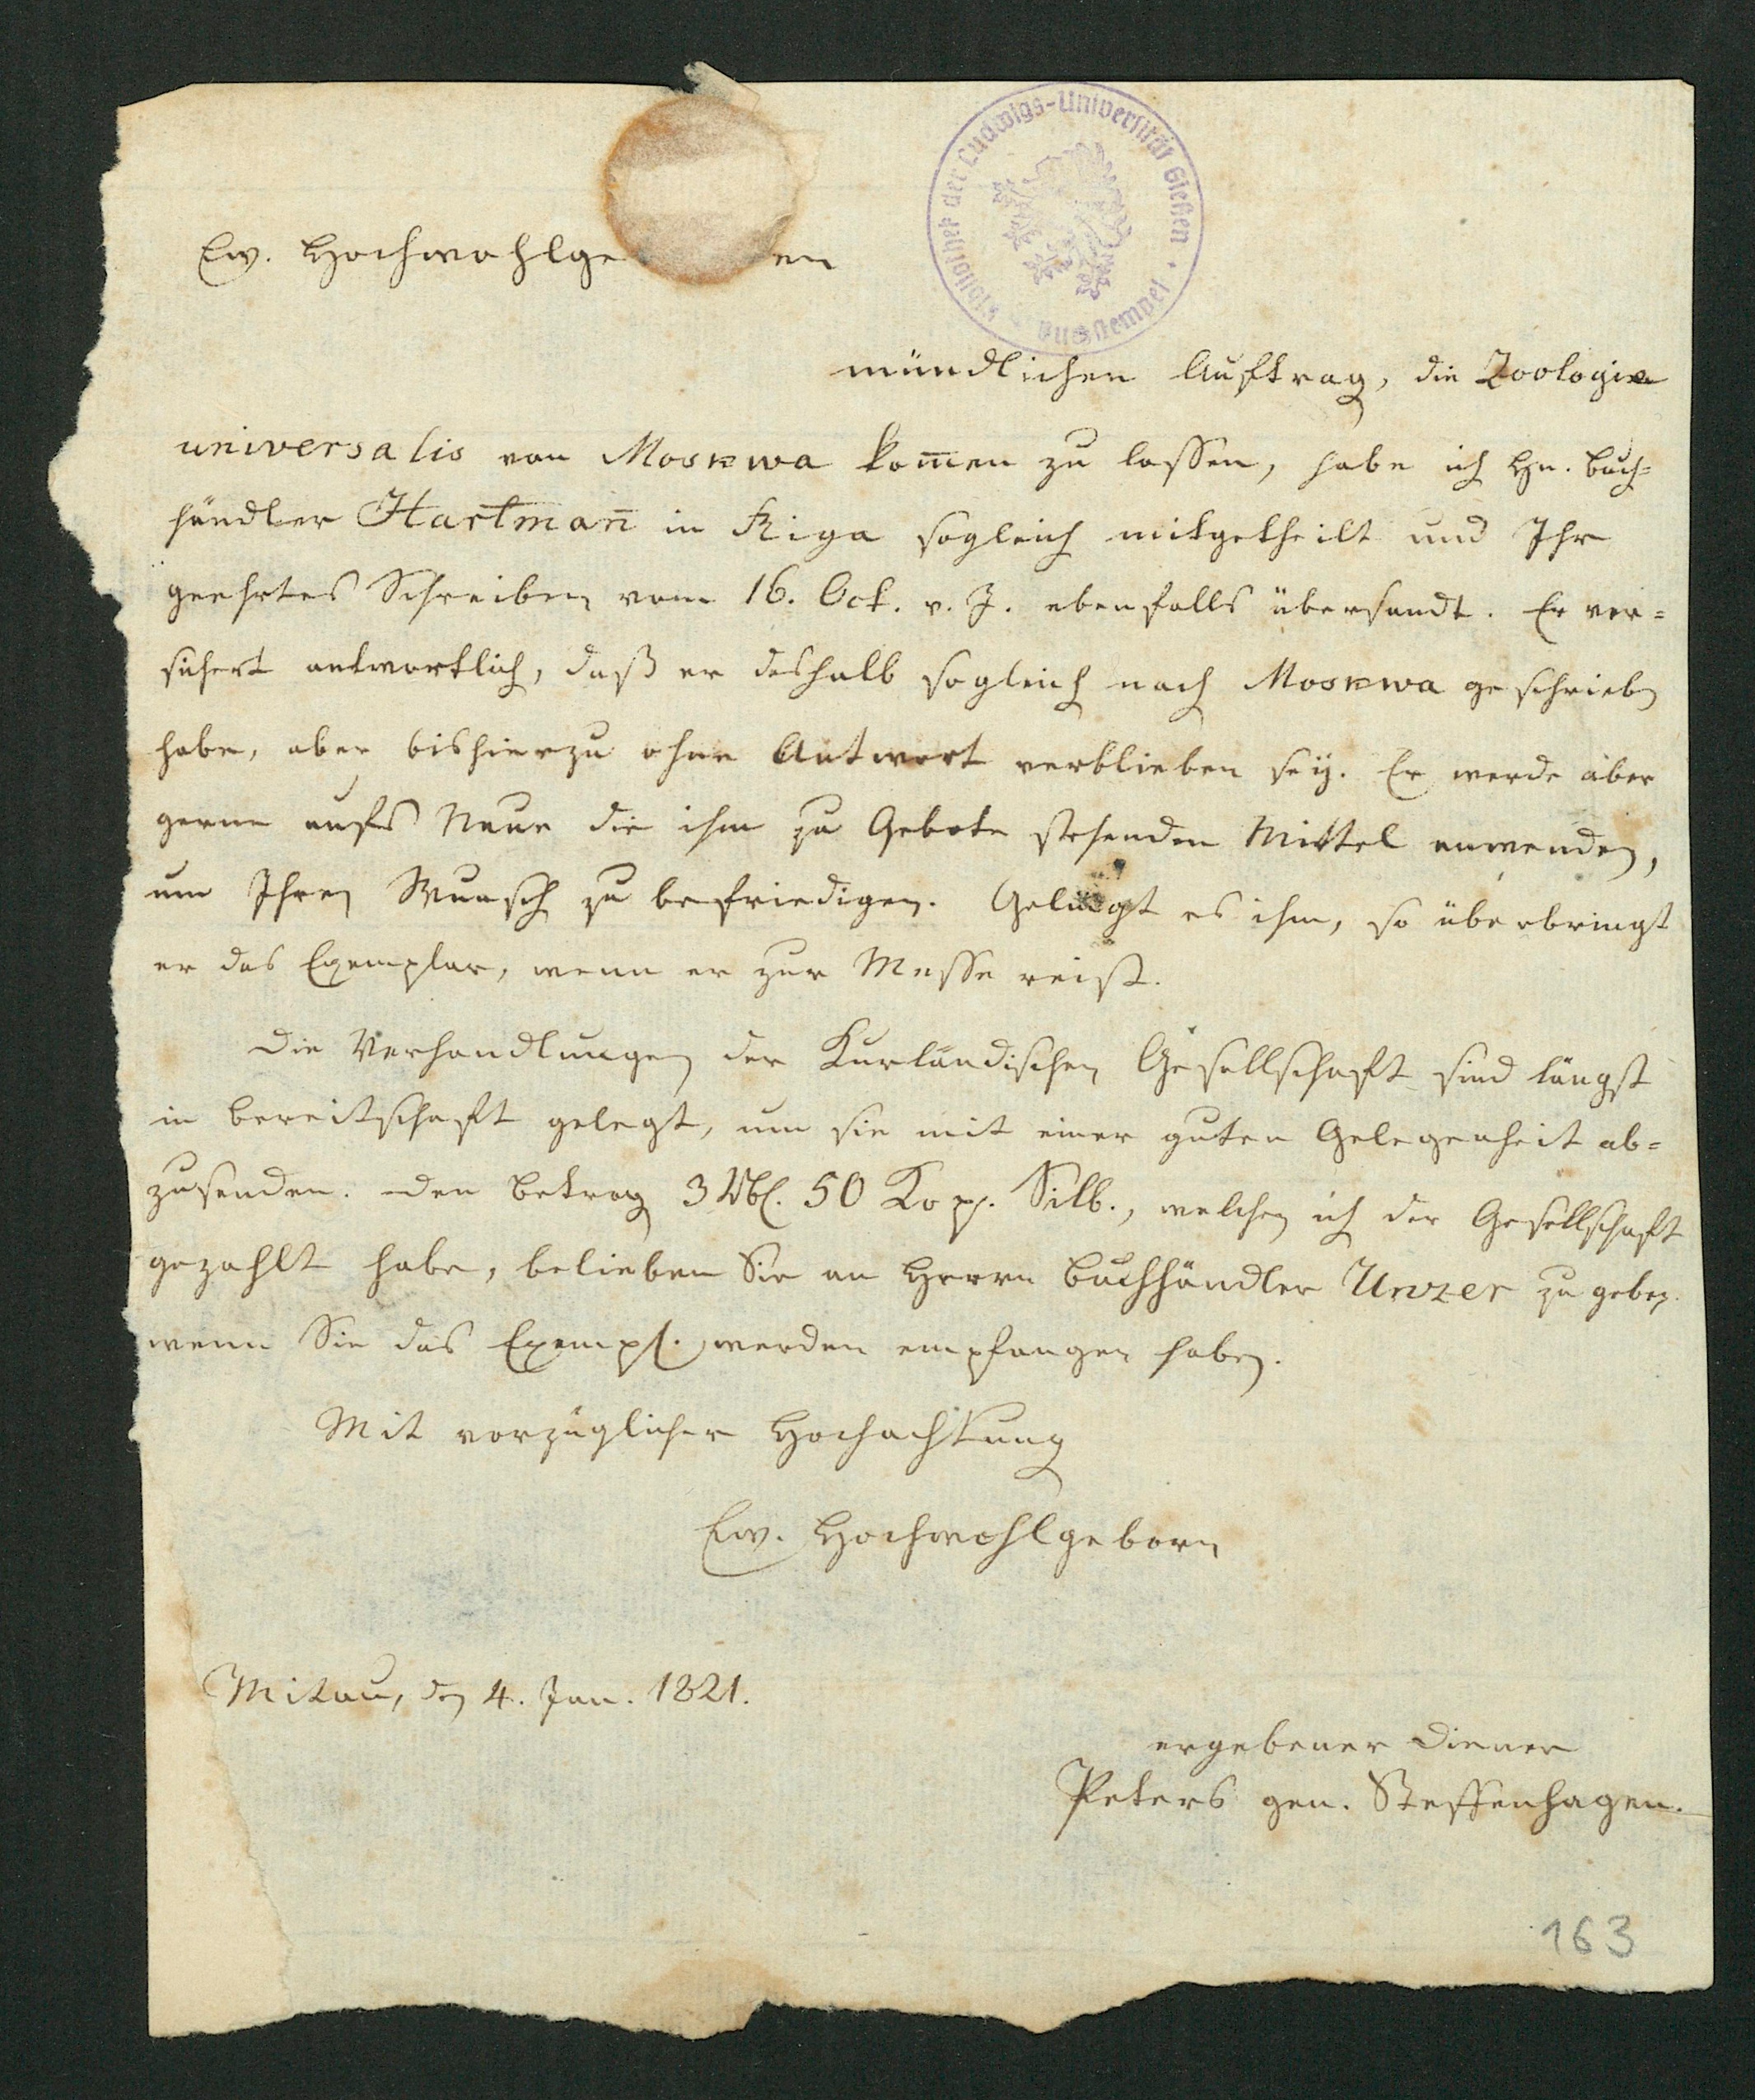 Bibliothek der Ludwigs-Universität Gießen
Ew. Hochwohlge en
mündlichen Auftrag, die Zoologia
universalis von Moskwa kom̅en zu lassen, habe ich Hn. Buch=
händler Hartman̅ in Riga sogleich mitgetheilt und Ihr
geehrtes Schreiben vom 16. Oct. v. J. ebenfalls übersandt. Er ver=
sichert antwortlich, daß er deshalb sogleich nach Moskwa geschrieben
habe, aber bishierzu ohne Antwort verblieben sey. Er werde aber
gerne aufs Neue die ihm zu Gebote stehenden Mittel anwenden,
um Ihren Wunsch zu befriedigen. Gelingt es ihm, so überbringt
er das Exemplar, wenn er zur Messe reist.
Die Verhandlungen der Kurländischen Gesellschaft sind längst
in Bereitschaft gelegt, um sie mit einer guten Gelegenheit ab=
zusenden. Den Betrag 3 Rbl. 50 Kop. Silb., welchen ich der Gesellschaft
gezahlt habe, belieben Sie an Herrn Buchhändler Unzer zu geben.
wenn Sie das Exempl. werden empfangen haben.
Mit vorzüglicher Hochachtung
Ew. Hochwohlgeborn
Mitau, den 4. Jan. 1821.
ergebener Diener
Peters gen. Steffenhagen.
163